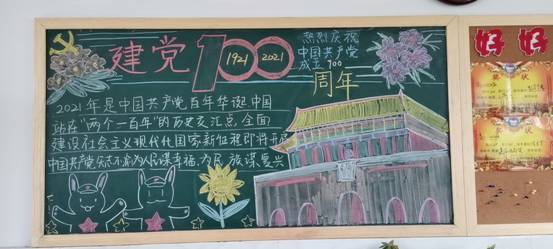 建党100
1921 2021
热烈庆祝
中国共产党
成立100
周年
2021年是中国共产党百年华诞中国
站在"两个一百年"的历史交汇点全面
建设社会主义现代化国家新征程即将开展
中国共产党矢志不渝为人民谋幸福,为民族谋复兴
好 好
奖状
奖状